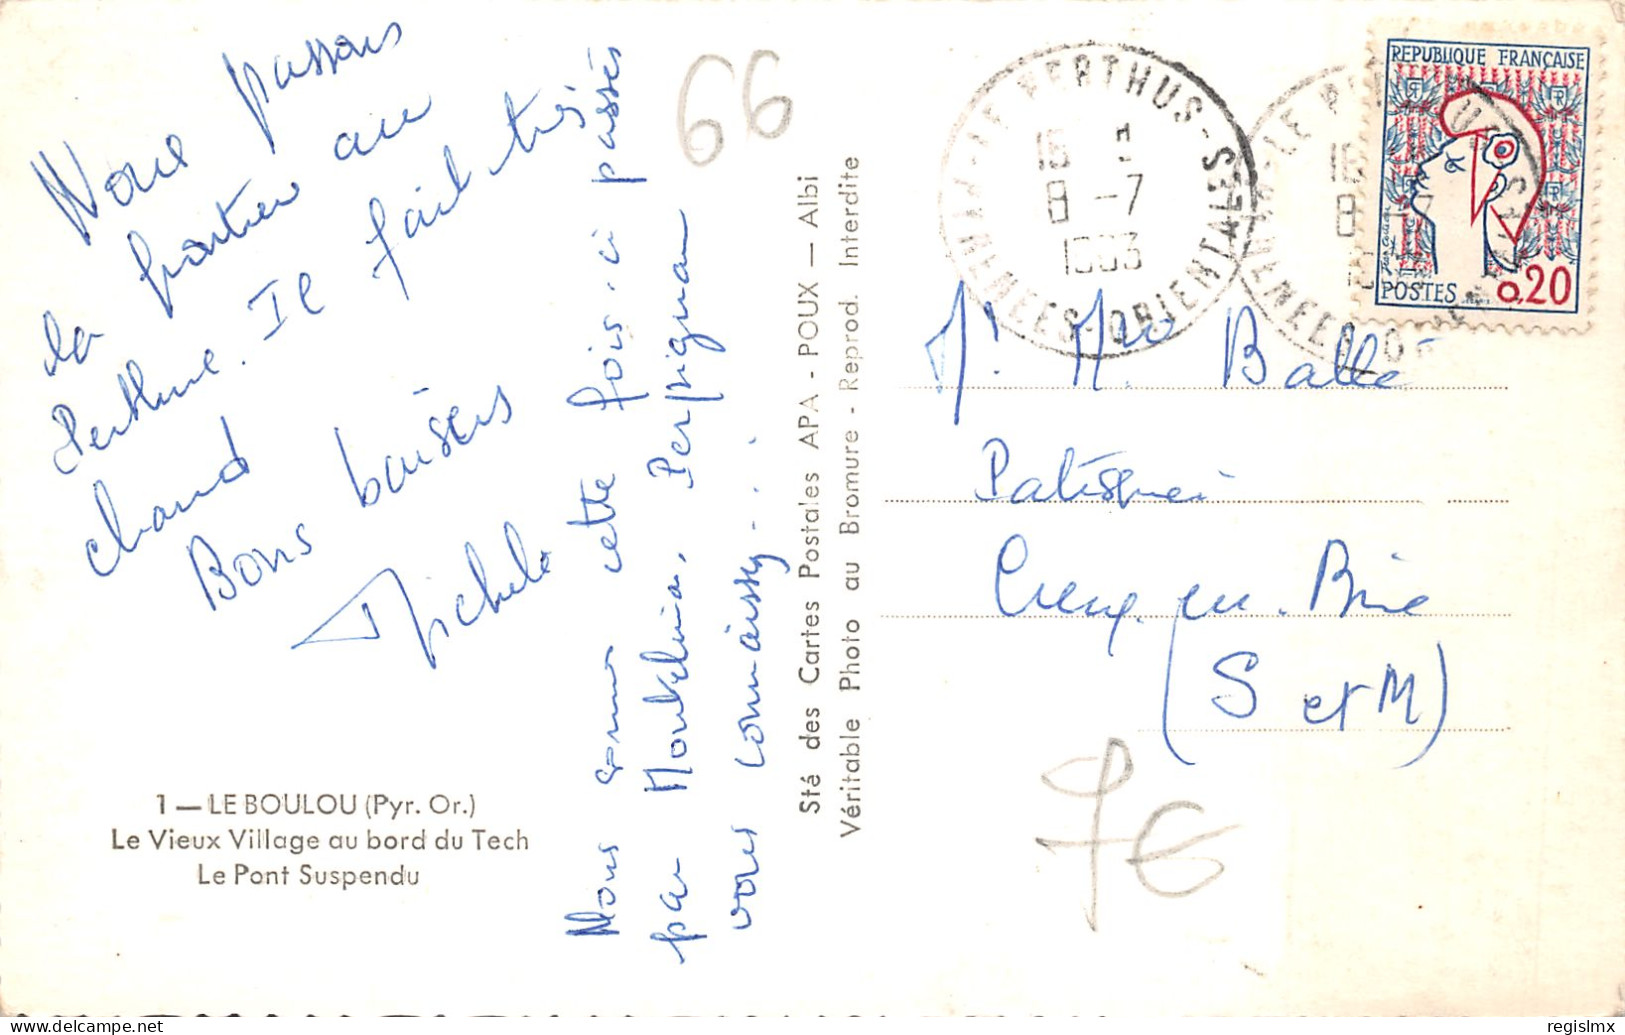 Nous passons
la frontière au
Perthus. Il fait très
chaud
Bons baisers
Michèle
Nous sommes cette fois-ci passés
par Montélimar, Perpignan
vous connaissez...
66
1 — LE BOULOU (Pyr. Or.)
Le Vieux Village au bord du Tech
Le Pont Suspendu
Sté des Cartes Postales APA - POUX — Albi
Véritable Photo au Bromure - Reprod. Interdite
LE PERTHUS - PYRENEES-ORIENTALES
16
8 -7
1963
REPUBLIQUE FRANÇAISE
POSTES
0,20
Mr Me Ballé
Patissier
Crecy en Brie
(S et M)
7€
regislmx